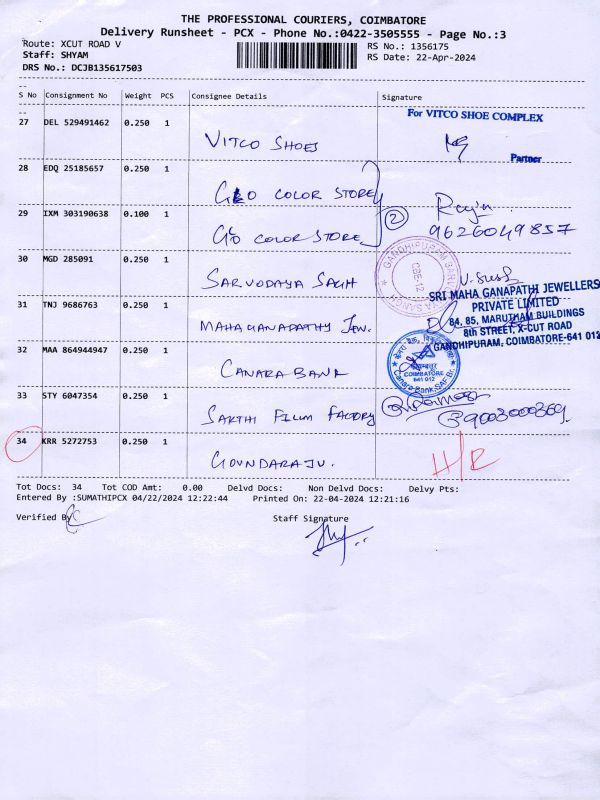 THE PROFESSIONAL COURIERS, COIMBATORE
Delivery Runsheet - PCX - Phone No.:0422-3505555 - Page No.:3
Route: XCUT ROAD V
RS No.: 1356175
Staff: SHYAM
RS Date: 22-Apr-2024
DRS No.: DCJB135617503
S No Consignment No Weight PCS Consignee Details Signature
27 DEL 529491462 0.250 1 VITCO SHOES
For VITCO SHOE COMPLEX
Partner
28 EDQ 25185657 0.250 1 COLOR STORE
29 IXM 303190638 0.100 1 COLOR STORE
2
9626049857
30 MGD 285091 0.250 1 SARVODAYA SAGH
GANDHIPURAM
CBE-12
31 TNJ 9686763 0.250 1 MAHAGANAPATHY JEW.
SRI MAHA GANAPATHI JEWELLERS
PRIVATE LIMITED
84, 85, MARUTHAM BUILDINGS
8th STREET, X-CUT ROAD
GANDHIPURAM, COIMBATORE-641 012
32 MAA 864944947 0.250 1 CANARA BANK
COIMBATORE
641 012
Canara Bank
33 STY 6047354 0.250 1 SAKTHI FILM FACTORY
9003000369
34 KRR 5272753 0.250 1 GOVNDARAJU.
H/R
Tot Docs: 34 Tot COD Amt: 0.00 Delvd Docs: Non Delvd Docs: Delvy Pts:
Entered By :SUMATHIPCX 04/22/2024 12:22:44 Printed On: 22-04-2024 12:21:16
Verified By
Staff Signature